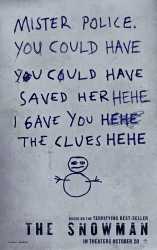 MISTER POLICE.
YOU COULD HAVE
YOU COULD HAVE
SAVED HER HEHE
I GAVE YOU HEHE
THE CLUES HEHE
BASED ON THE TERRIFYING BEST-SELLER
THE SNOWMAN
IN THEATERS OCTOBER 20